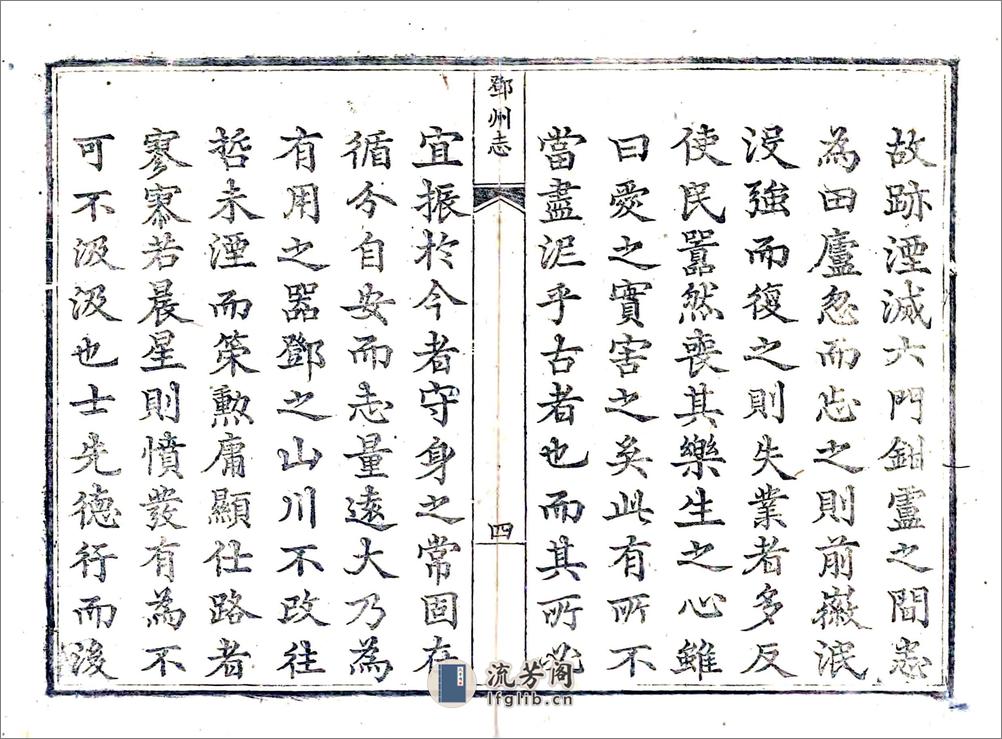 故跡湮滅六門鉗盧之間悉
為田廬忽而忘之則前徽泯
没強而復之則失業者多反
使民囂然喪其樂生之心雖
曰愛之實害之矣此有所不
當盡泥乎古者也而其所
鄧州志
四
宜振於今者守身之常固在
循分自安而志量遠大乃為
有用之器鄧之山川不改往
哲未湮而策勲庸顯仕路者
寥寥若晨星則憤發有為不
可不汲汲也士先德行而後
流芳阁
lfglib.cn